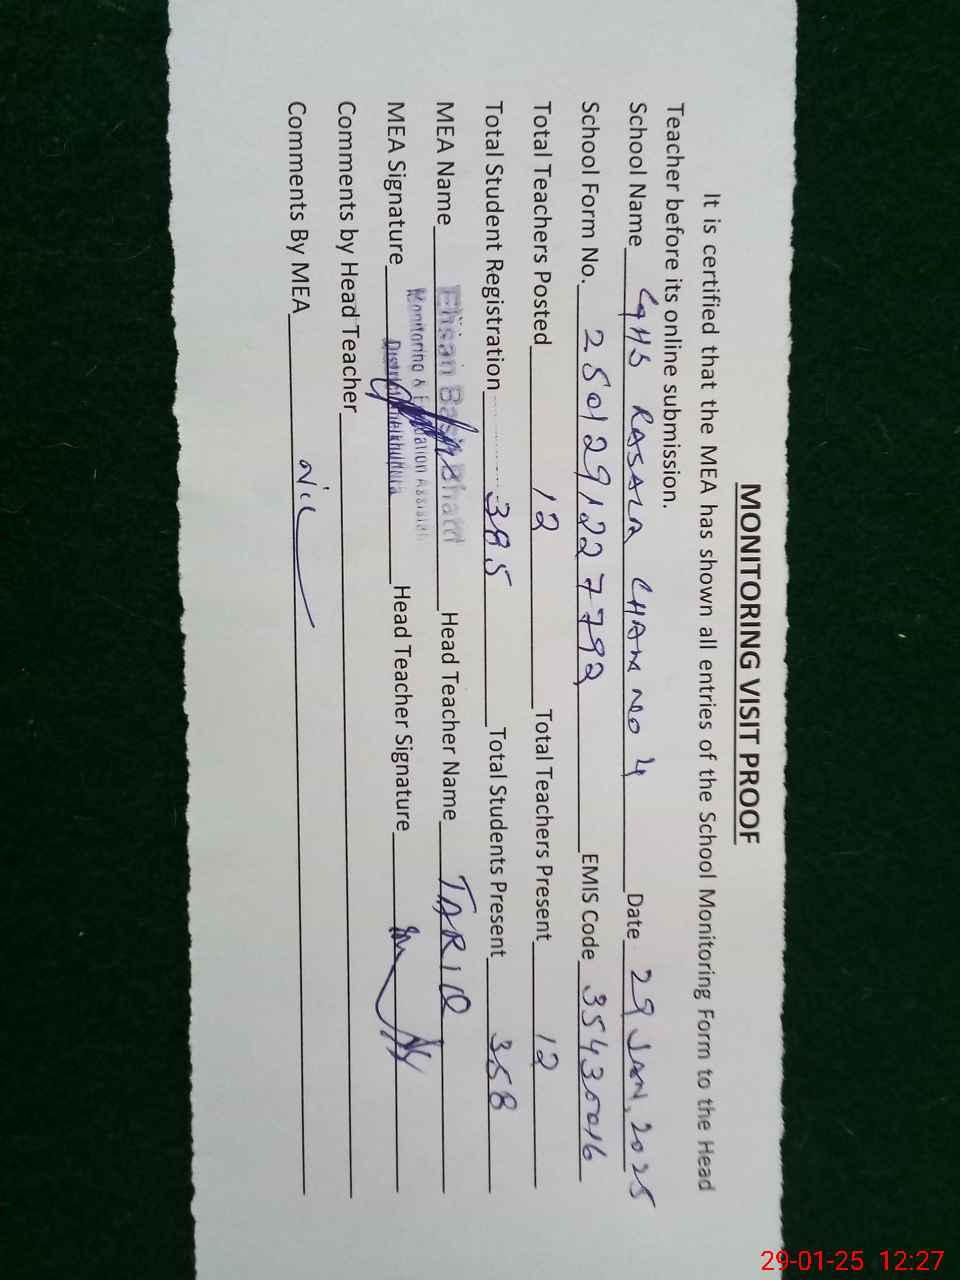 MONITORING VISIT PROOF
It is certified that the MEA has shown all entries of the School Monitoring Form to the Head
Teacher before its online submission.
School Name GHS RASALA CHAK NO 4 Date 29 JAN, 2025
School Form No. 2501291227792 EMIS Code 35430016
Total Teachers Posted 12 Total Teachers Present 12
Total Student Registration 385 Total Students Present 358
MEA Name Ehsan Head Teacher Name TARIQ
Monitoring &
MEA Signature Head Teacher Signature
Comments by Head Teacher
Comments By MEA Nil
29-01-25 12:27